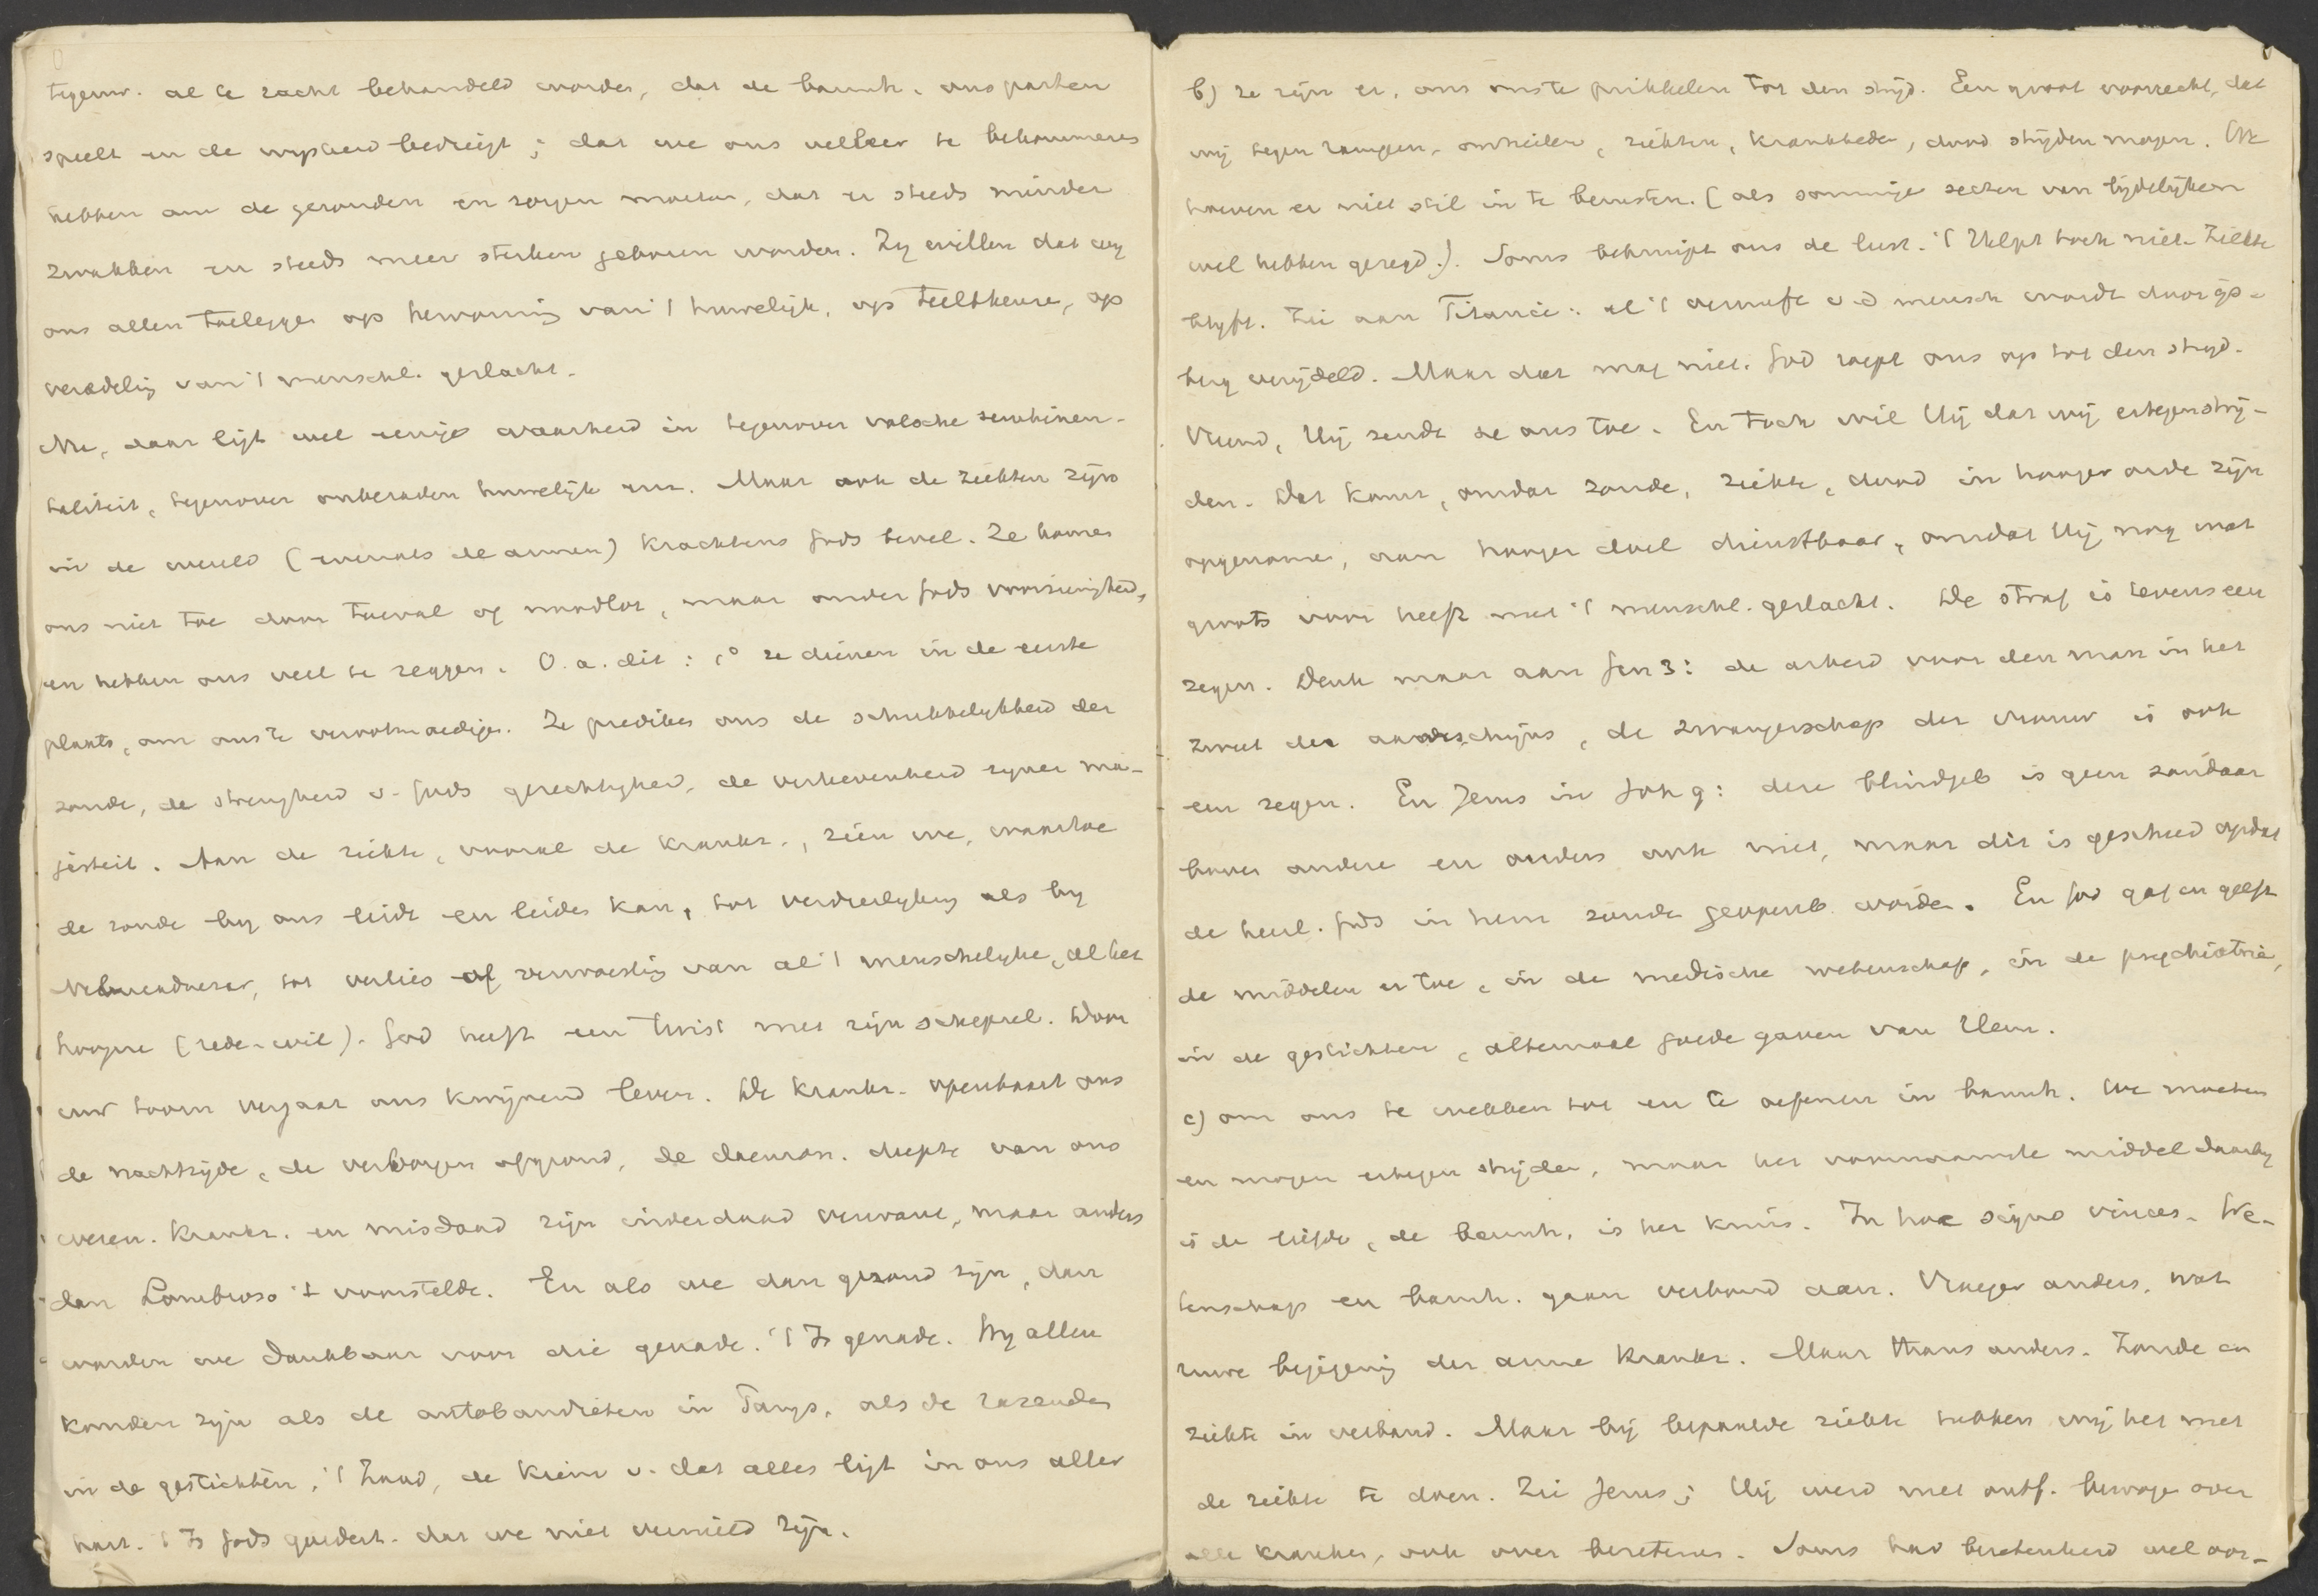 tegenw. al te zacht behandeld worden, dat de barmh. ons parten
speelt en de wijsheid bedriegt; dat we ons veeleer te bekommeren
hebben om de gezonden en zorgen moeten, dat er steeds minder
zwakken en steeds meer sterken geboren worden. Zij willen dat wij
ons allen toeleggen op hervorming van 't huwelijk, op teeltkeuze, op
veredeling van 't menschl. geslacht.
Nu, daar ligt wel eenige waarheid in tegenover valsche sentimen-
taliteit, tegenover onberaden huwelijk enz. Maar ook de ziekten zijn
in de wereld (evenals de armen) krachtens Gods bevel. Ze komen
ons niet toe door toeval of noodlot, maar onder Gods voorzienigheid,
en hebben ons veel te zeggen. O.a. dit: 1° ze dienen in de eerste
plaats, om ons te verootmoedigen. Ze prediken ons de schrikkelijkheid der
zonde, de strengheid v. Gods gerechtigheid, de verhevenheid zijner ma-
jesteit. Aan de ziekte, vooral de krankz., zien we, waartoe
de zonde bij ons leidt en leiden kan, tot verdierlijking als bij
Nebucadnezar, tot verlies of verwoesting van al 't menschelijke, al het
hoogere (rede, wil). God heeft een twist met zijn schepsel. Door
uw toorn vergaat ons kwijnend leven. De krankz. openbaart ons
de nachtzijde, de verborgen afgrond, de daemon. diepte van ons
wezen. Krankz. en misdaad zijn inderdaad verwant, maar anders
dan Lombroso 't voorstelde. En als we dan gezond zijn, dan
worden we dankbaar voor die genade. 't Is genade. Wij allen
konden zijn als de autobandieten in Parijs, als de razenden
in de gestichten, 't Zaad, de kiem v. dat alles ligt in ons aller
hart. 't Is Gods goedert. dat we niet vernield zijn.
b) ze zijn er, om ons te prikkelen tot den strijd. Een groot voorrecht, dat
wij tegen rampen, onheilen, ziekten, krankheden, dood strijden mogen. We
hoeven er niet stil in te berusten. (als sommige secten van lijdelijken
wel hebben gezegd.). Soms bekruipt ons de lust. 't Helpt toch niet. Ziekte
blijft. Zie aan Titanic: al 't vernuft v.d. mensch wordt door ijs-
berg verijdeld. Maar dat mag niet. God roept ons op tot den strijd.
Vreemd, Hij zendt ze ons toe. En toch wil Hij dat wij ertegen strij-
den. Dat komt, omdat zonde, ziekte, dood in hooger orde zijn
opgenomen, aan hooger doel dienstbaar, omdat Hij nog wat
groots voor heeft met 't menschl. geslacht. De straf is tevens een
zegen. Denk maar aan Gen 3: de arbeid voor den man in het
zweet des aanschijns, de zwangerschap der vrouw is ook
een zegen. En Jezus in Joh 9: deze blindgeb is geen zondaar
boven andere en ouders ook niet, maar dit is geschied opdat
de heerl. Gods in hem zoude geopenb worden. En God gaf en geeft
de middelen er toe, in de medische wetenschap, in de psychiatrie,
in de gestichten, altemaal goede gaven van Hem.
c) om ons te wekken tot en te oefenen in barmh. We moeten
en mogen ertegen strijden, maar het voornaamste middel daarbij
is de liefde, de barmh, is het kruis. In hoc signo vinces. We-
tenschap en barmh. gaan verbond aan. Vroeger anders, wat
ruwe bejegening der arme krankz. Maar thans anders. Zonde en
ziekte in verband. Maar bij bepaalde ziekte hebben wij het met
de ziekte te doen. Zie Jezus; Hij werd met ontf. bewogen over
alle kranken, ook over bezetenen. Soms had bezetenheid wel oor-